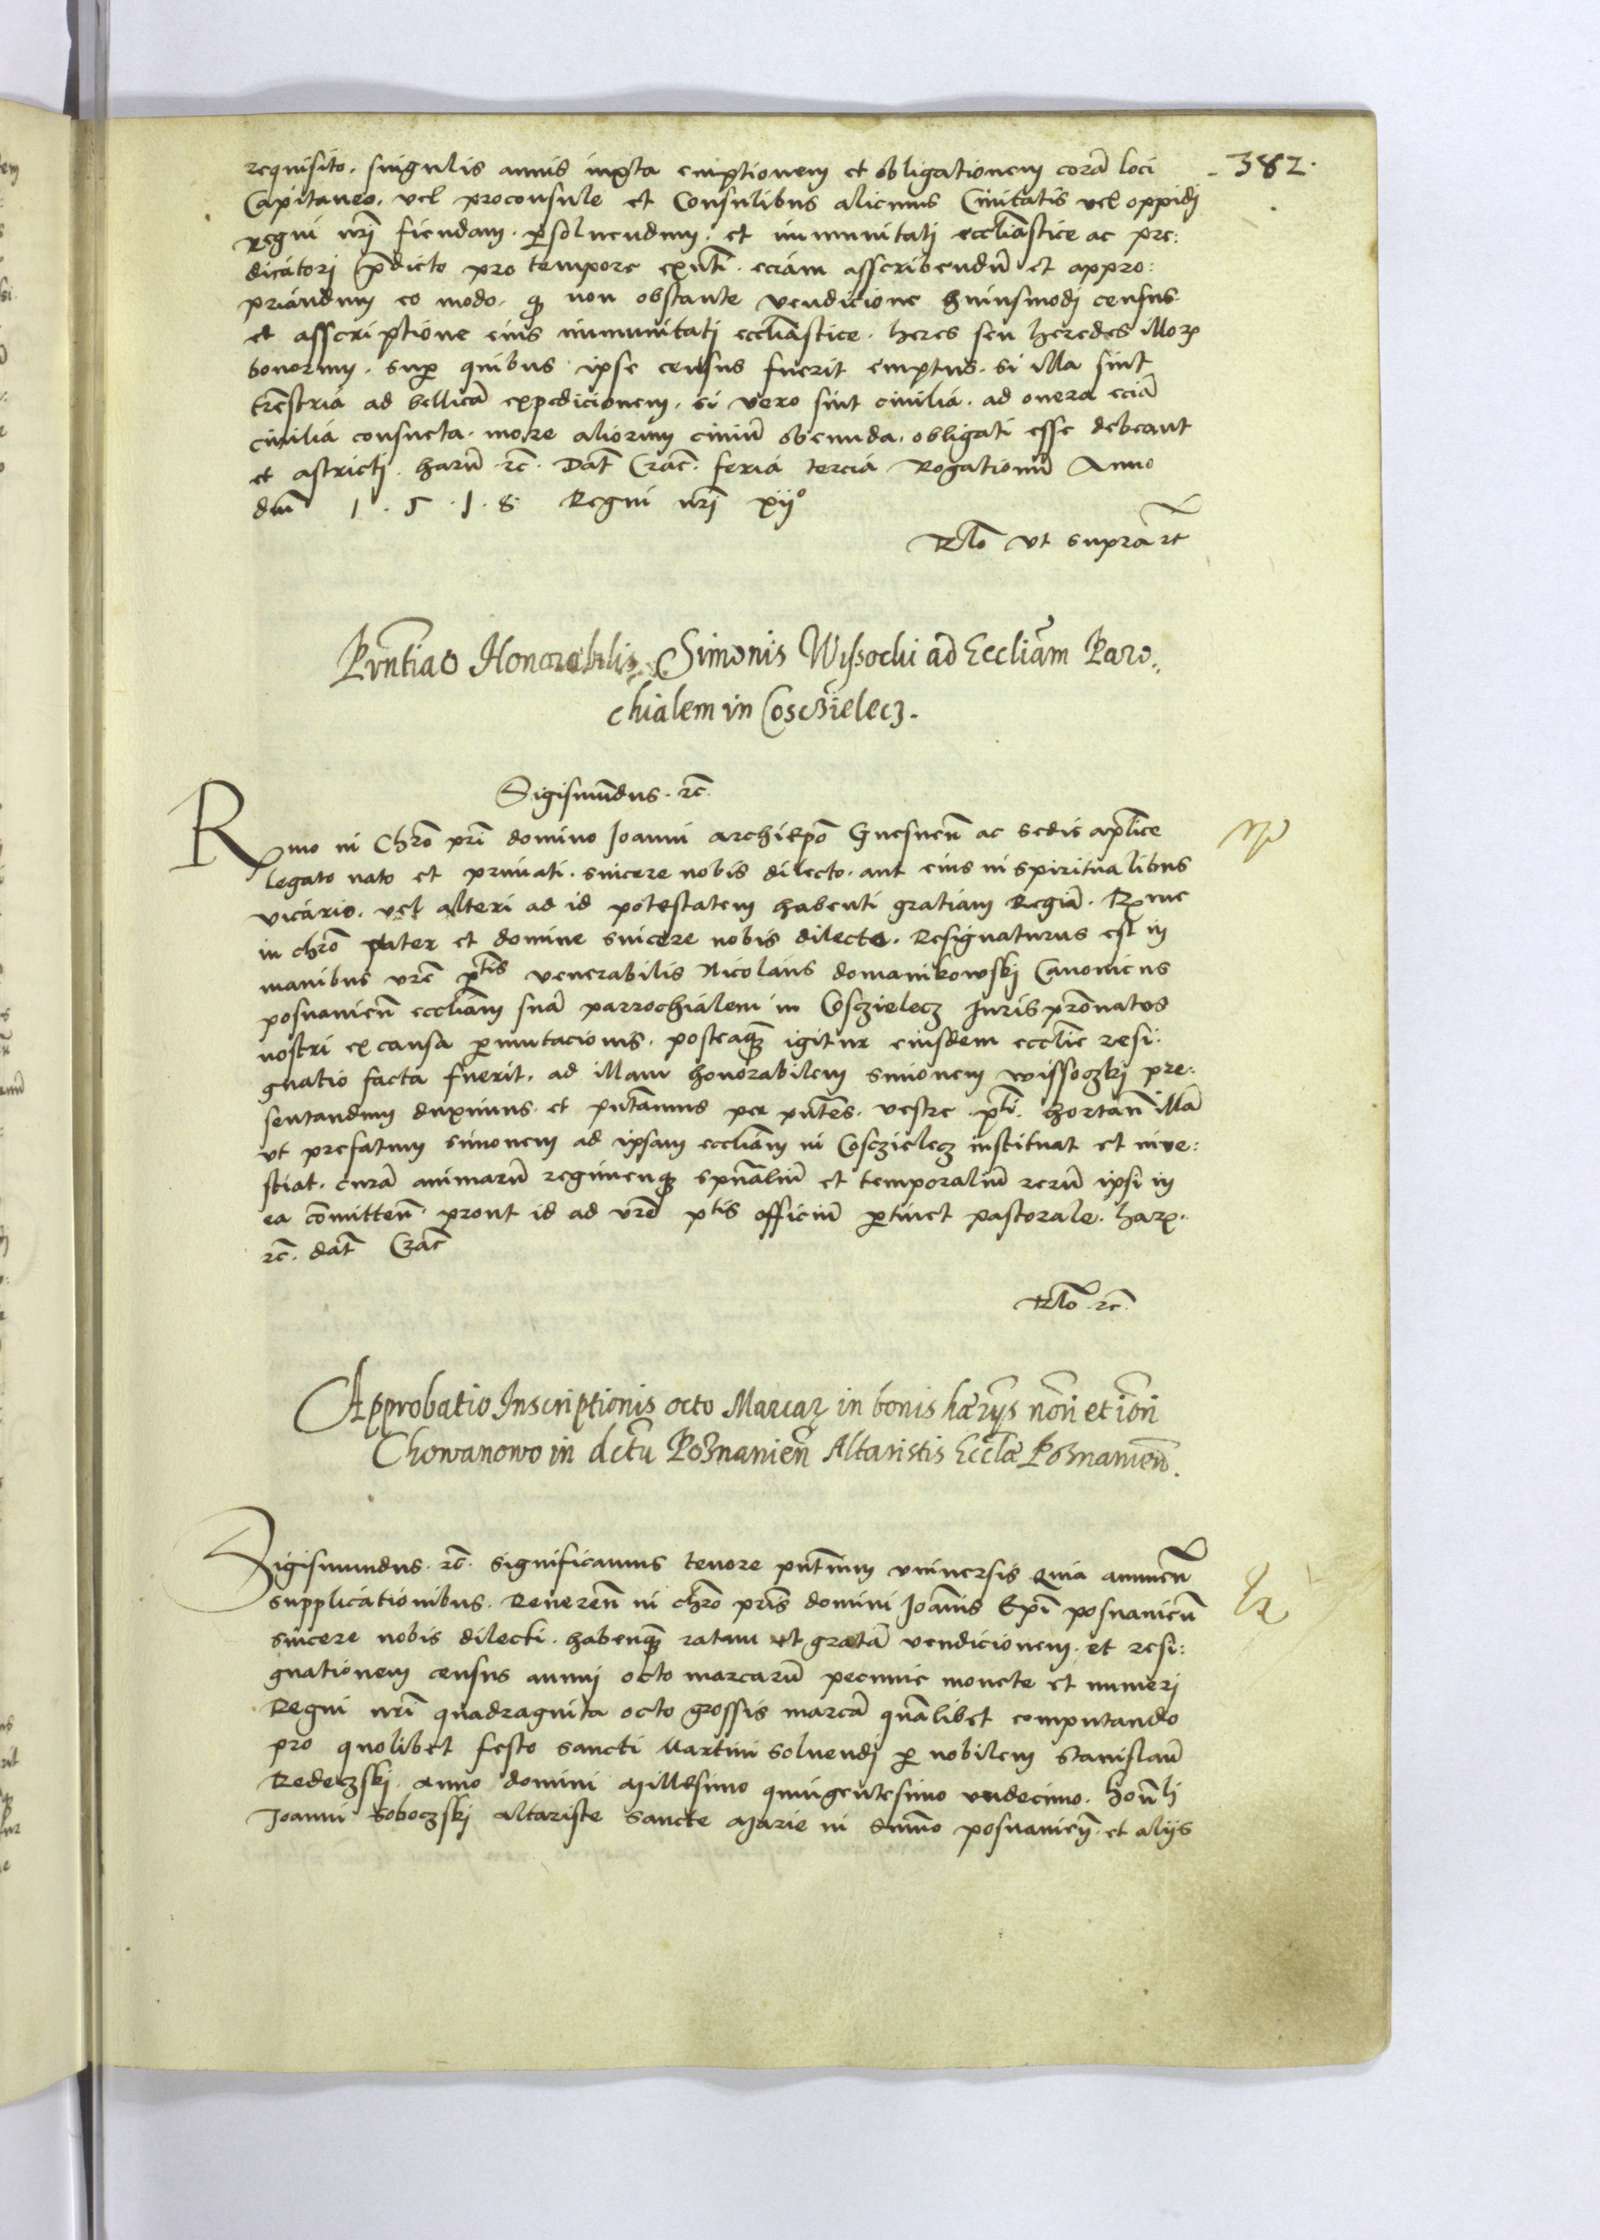 382.
requisito. singulis annis iuxta emptionem et obligationem corā loci
Capitaneo. vel proconsule et Consulibus alicuius Ciuitatis vel oppidj
regni nr̄i fiendam. ꝑsoluendum. et immunitatj eccl̄iastice ac pre:
dicatorj p̄dicto pro tempore exn̄ti. eciam asscribendū et appro:
priandum eo modo. ꝙ non obstante vendicione huiusmodj census
et asscriptione eius immunitatj eccl̄iastice. heres seu heredes illoꝝ
bonorum. suꝑ quibus ipse census fuerit emptus. si illa sint
tr̄estria ad bellicā expedicionem. si vero sint ciuilia. ad onera eciā
ciuilia consueta. more aliorum ciuiū obeunda. obligati esse debeant
et astrictj. harū rc̄. Dat̄ Crac̄. feria tercia Rogationū Anno
dn̄i 1.5.1.8. Regni nr̄i xijº
Rl̄o vt supra rc̄
Pn̄ntiao Honorabilis Simonis Wissochi ad Eccliām Paro„
chialem in Cosczielecz.
Sigismūdus. rc̄.
Rmo in Chr̄o pr̄i domino Joanni archiep̄o Gnesnen̄ ac sedis ap̄lice
legato nato et primati. sincere nobis dilecto. aut eius in spiritualibus
vicario. vel alteri ad id potestatem habenti gratiam Regiā. Rme
in chr̄o pater et domine sincere nobis dilecte. Resignaturus est in
manibus vr̄e p̄tis venerabilis Nicolaus domanikowskj Canonicus
posnanien̄ eccl̄iam suā parrochialem in Cosczielecz Juris pr̄onatus
nostri ex causa ꝑmutacionis. posteaquā igitur eiusdem eccl̄ie resi:
gnatio facta fuerit. ad illam honorabilem Simonem wissoczkj pre:
sentandum duximus. et pn̄tamus per pn̄tes. vestre. p̄ti. hortan̄ illā
vt prefatum simonem ad ipsam eccl̄iam in Cosczielecz instituat et inve:
stiat. curā animarū regimenqꝫ spūaliū et temporaliū rerū ipsi in
ea cōmitten̄. prout id ad vr̄e p̄tis officiū ꝑtinet pastorale. haꝝ.
rc̄. dat̄ Crac̄
Rl̄o. rc̄.
Approbatio Inscriptionis octo Marcaꝝ in bonis hærijs nōri et iōri
Chowanowo in dc̄tu Poznanien̄ Altaristis Eccl̄æ Poznanien̄.
Sigismundus. rc̄. significamus tenore pn̄tium vniuersis Quia annuen̄
supplicationibus. Reueren̄ in chr̄o pr̄is domini Joānis Ep̄i posnanien̄
sincere nobis dilecti. habenqꝫ ratam et gratā vendicionem. et resi:
gnationem census annui octo marcarū pecunie monete et numerj
Regni nr̄i quadraginta octo grossis marcā quālibet computando
pro quolibet festo sancti Martini soluendj ꝑ nobilem Stanislaū
Redeczskj. anno domini Millesimo quingentesimo vndecimo. hon̄li
Joanni Soboczskj altariste sancte Marie in Summo posnanien̄. et alijs